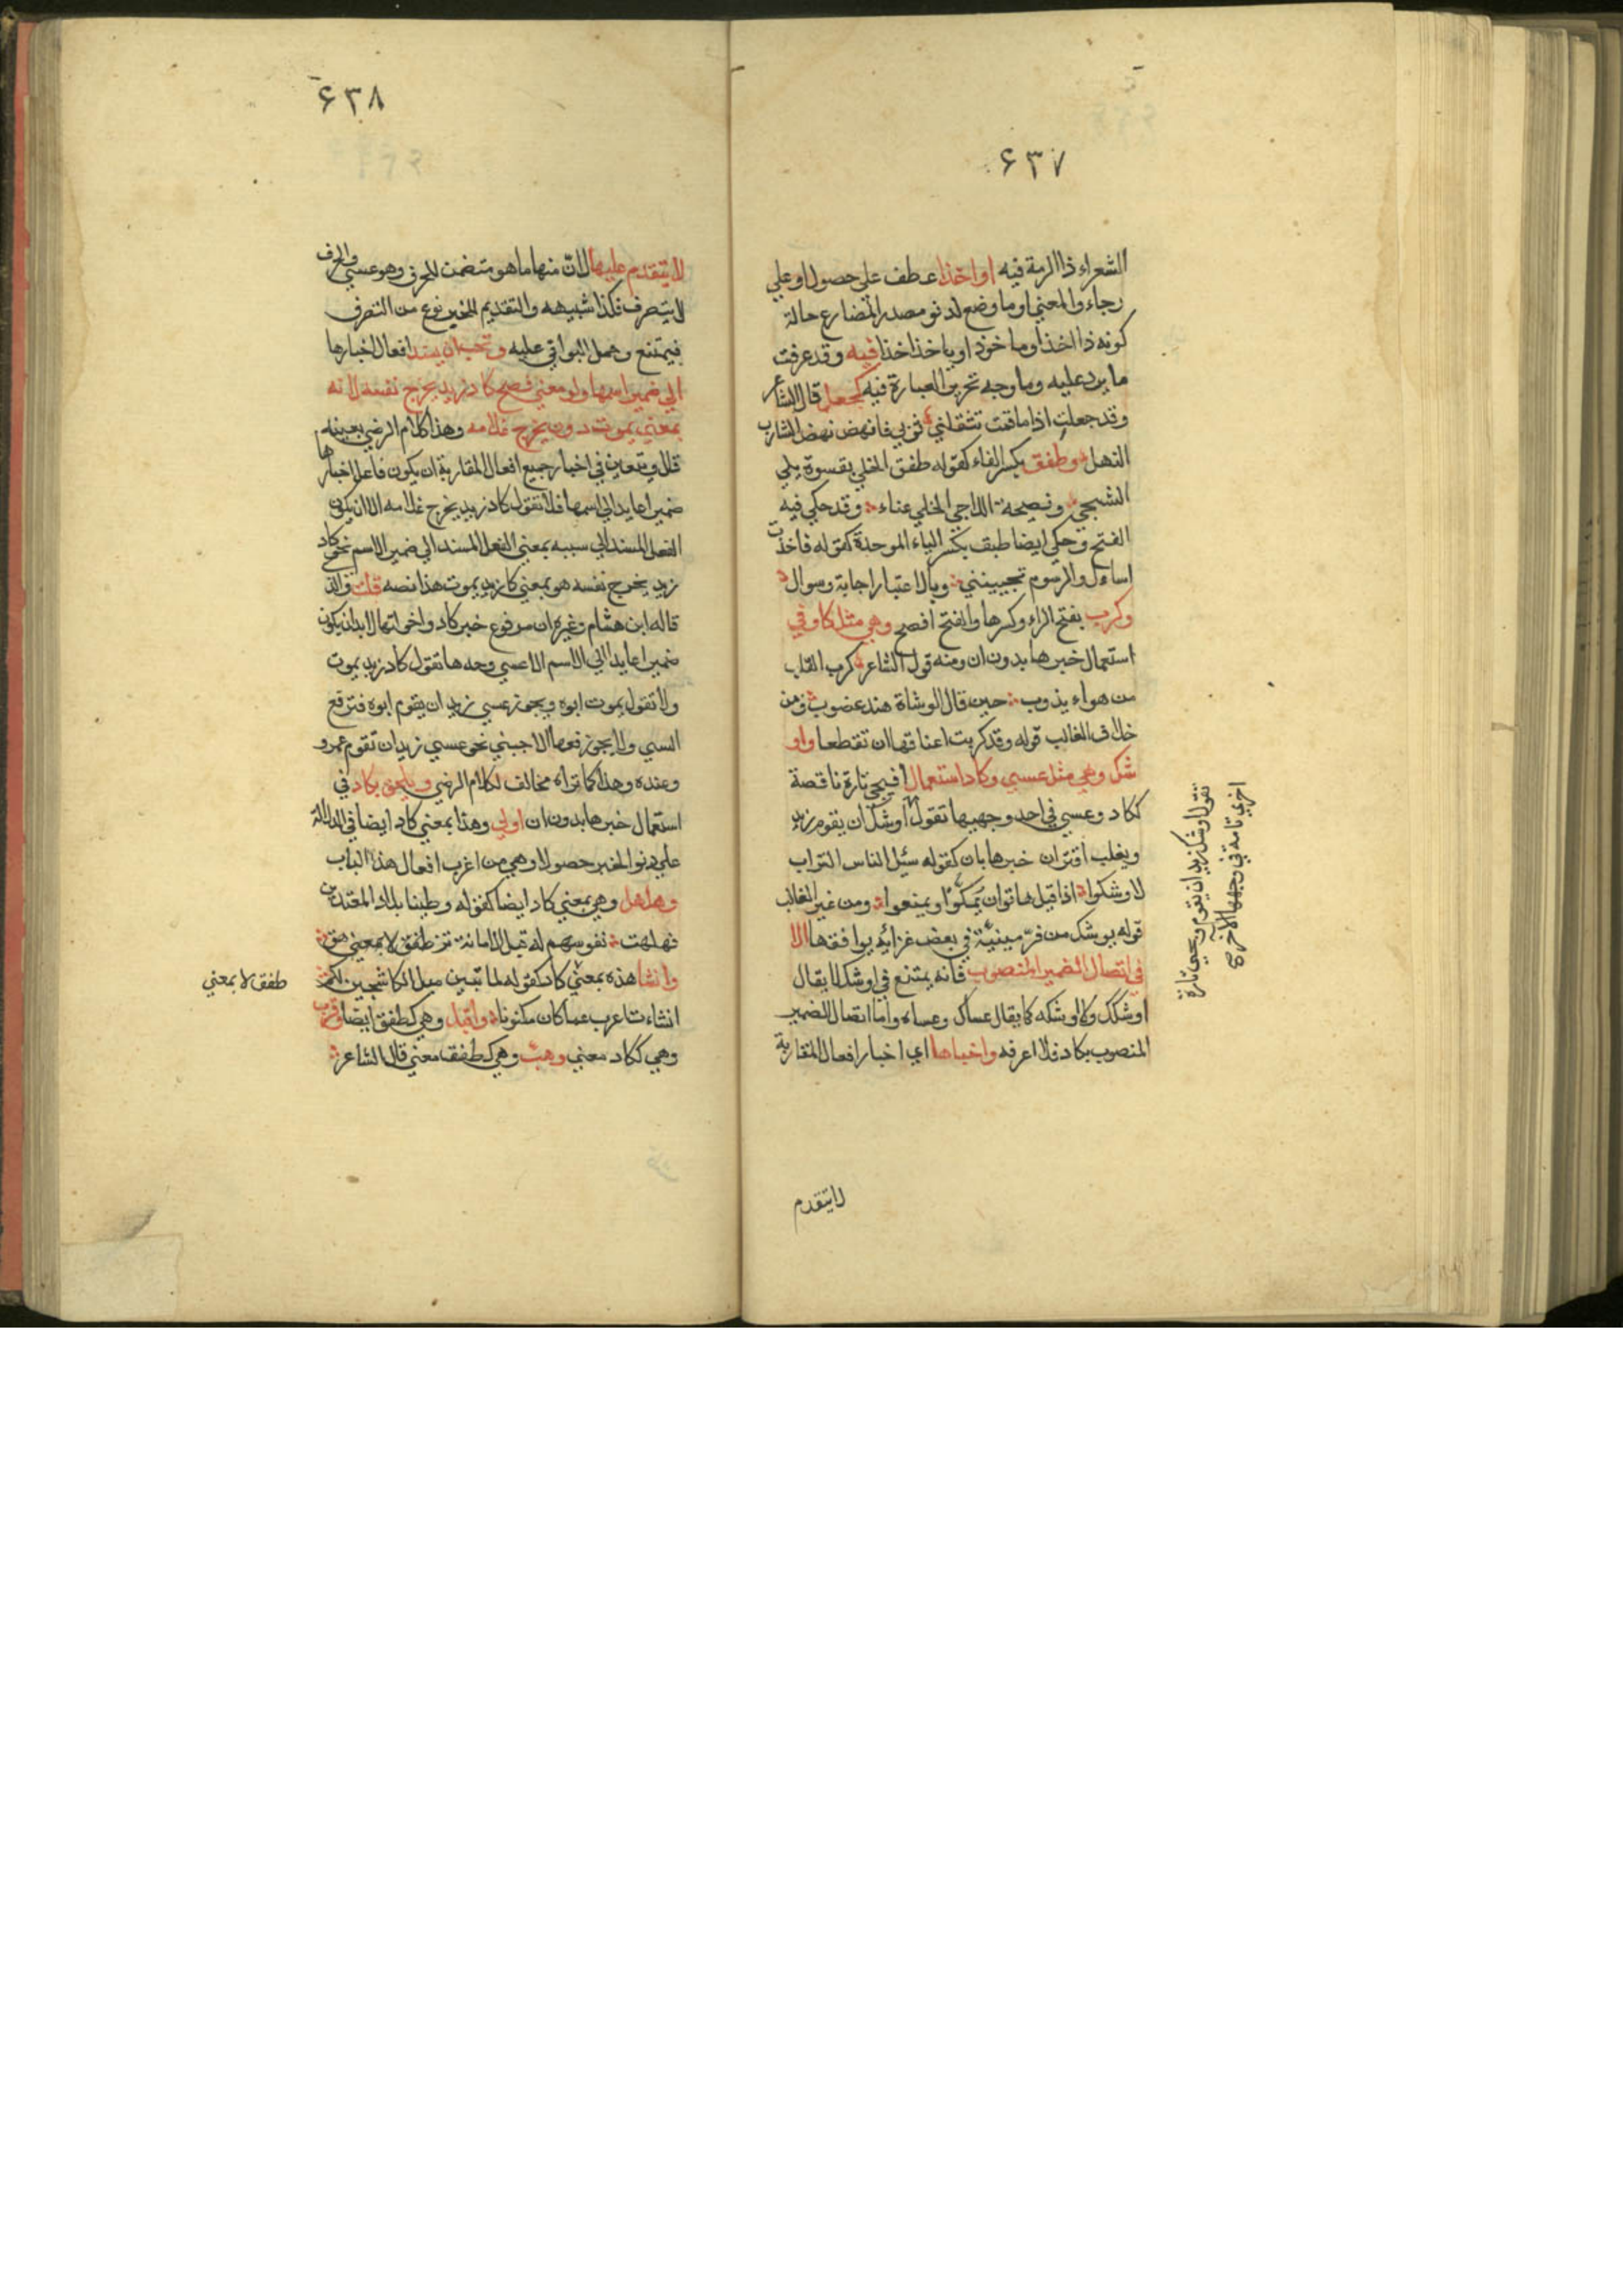 ٤٣٧
الشعراء ذا الرمة فيه او اخذا عطف على حصولا وعلي
رجاء والمعني او ما وضع لدنو مصدر المضارع حالة
كونه ذا اخذ او ما خوذ او ياخذ اخذا فيه وقد عرفت
ما يرد عليه وما وجه تحرير العبارة فيه كجعل قال الشاعر
وقد جعلت اذا ما قمت تثقلني ثوبي فانهض نهض الشارب
الثهل وطفق بكسر الفاء كقوله طفق الخلي بقسوة يلي
الشجي ونصيحة اللاجي الخلي عناء وقد حكي فيه
الفتح وحكي ايضا طبق بكسر الباء الموحدة كقوله فاخذت
اساءل والرسوم تجيبينني وبالاعتبار اجابة وسوال
وكرب بفتح الراء وكسرها والفتح افصح وهي مثل كاد في
استعمال خبرها بدون ان ومنه قول الشاعر كرب القلب
من هواء يذوب حين قال الوشاة هند غضوب ومن
خلاف الغالب قوله وقد كربت اعناقها ان تقطعا واو
شك وهي مثل عسي وكاد استعمالا فيجي تارة ناقصة
ككاد وعسي في احد وجهيها تقول اوشك ان يقوم زيد
ويغلب اقتران خبرها بان كقوله سئل الناس التراب
لاوشكوا اذا قيل هاتوا ان يملوا ويمنعوا ومن غير الغالب
قوله يوشك من فر من منيته في بعض غراته يوافقها الا
في اتصال الضمير المنصوب فانه يمتنع في اوشك لا يقال
اوشكك ولا اوشكه كما يقال عساك وعساه واما اتصال الضمير
المنصوب بكاد فلا اعرفه واخبارها اي اخبار افعال المقاربة
تقول اوشك زيد ان يقوم ويجي تارة
اخري تامة في وجهها الآخر صح
لا يتقدم
٤٣٨
لا يتقدم عليها لان منها ما هو متضمن للحرف وهو عسي والحرف
لا يتصرف فكذا شبيهه والتقديم للخبر نوع من التصرف
فيمتنع وحمل البواقي عليه وتجب ان يسند افعال اخبارها
الي ضمير اسمها ولو معني فصح كاد زيد يخرج نفسه لانه
بمعني يموت دون يخرج غلامه وهذا كلام الرضي بعينه
قال ويتعين في اخبار جميع افعال المقاربة ان يكون فاعل اخبارها
ضميرا عايدا الي اسمها فلا تقول كاد زيد يخرج غلامه الا ان يكون
الفعل المسند الي سببه بمعني الفعل المسند الي ضمير الاسم نحو كاد
زيد يخرج نفسه هو بمعني كاد زيد يموت هذا نصه قلت والذ
قاله ابن هشام وغيره ان مرفوع خبر كاد واخواتها لا بد ان يكون
ضميرا عايدا الي الاسم الا عسي وحدها تقول كاد زيد يموت
ولا تقول يموت ابوه ويجوز عسي زيد ان يقوم ابوه فترفع
السببي ولا يجوز رفعها الاجنبي نحو عسي زيد ان تقوم عمرو
وعنده وهذا كما تراه مخالف لكلام الرضي ويلحق بكاد في
استعمال خبرها بدون ان اولي وهذا بمعني كاد ايضا في الدلالة
علي دنو الخبر حصولا وهي من اغرب افعال هذا الباب
وهلهل وهي بمعني كاد ايضا كقوله وطينا بلاد المعتدين
فهلهت نفوسهم له قبل الاماتة تز
وانشا هذه بمعني كاد كقوله لما تبين ميل الكاشحين لكم
انشاءت اعرب عما كان مكنونا واقبل وهي كطفق ايضا وقرب
وهي ككاد معني وهب وهي كطفق معني قال الشاعر
طفق لا بمعني